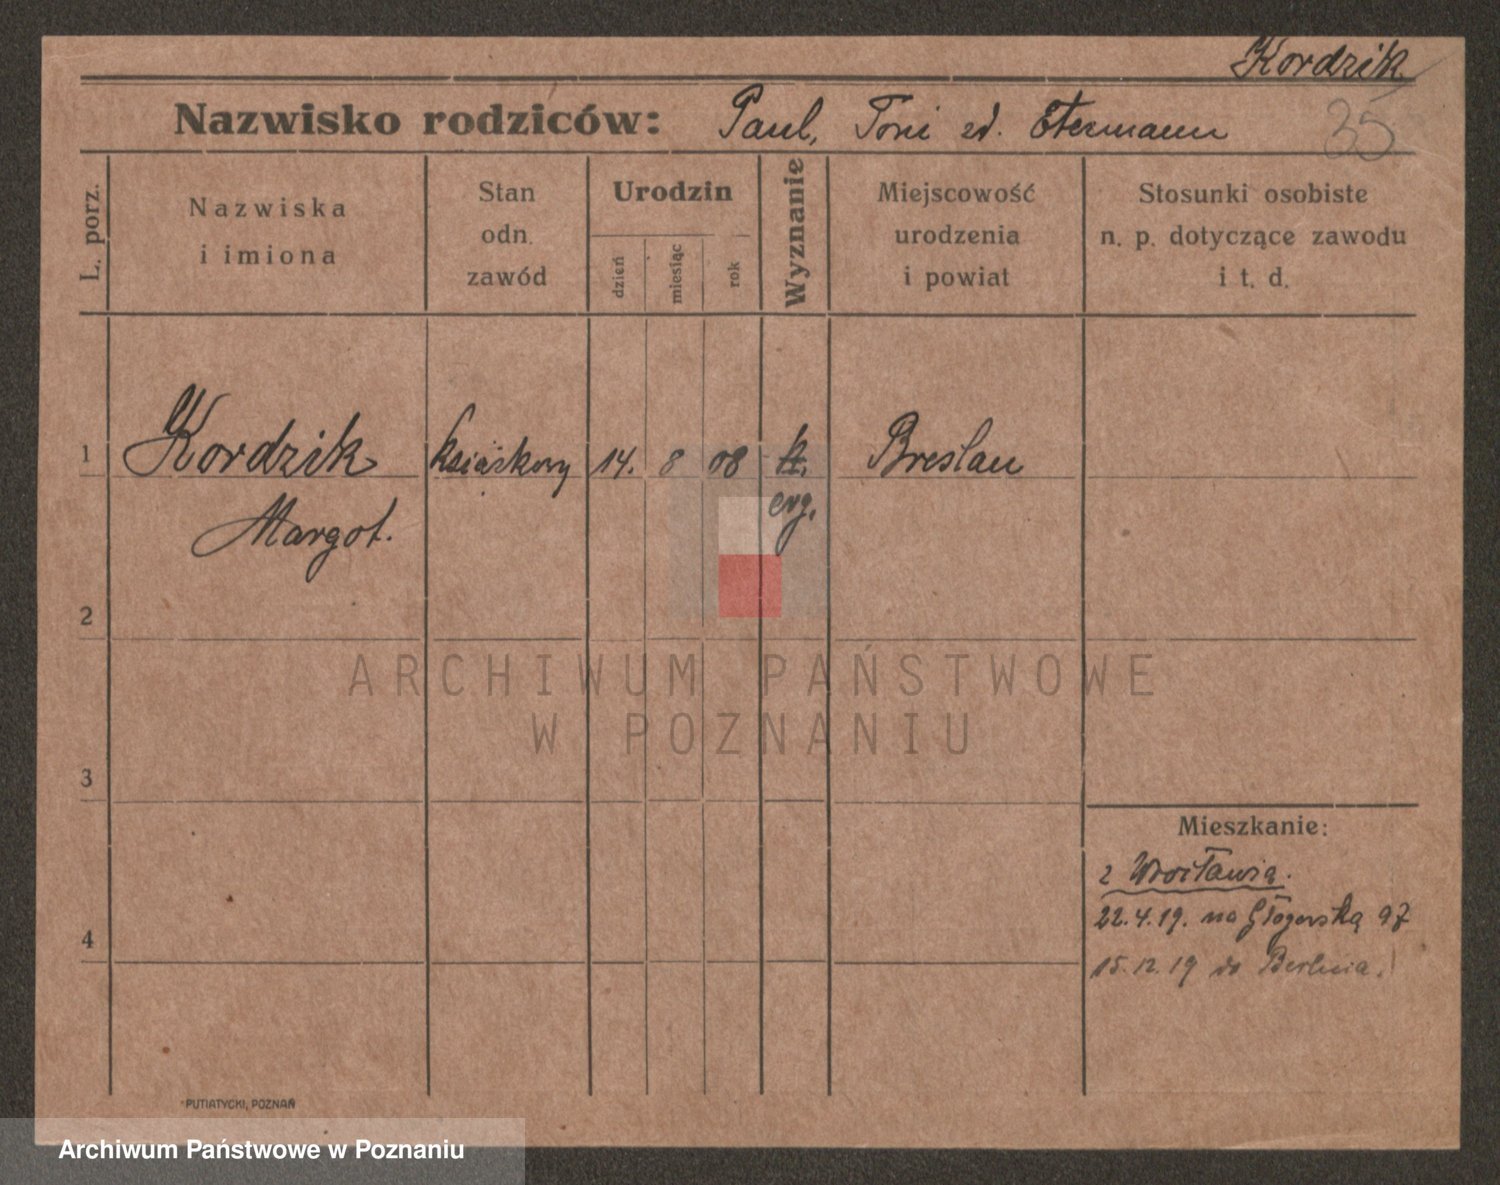 Kordzik
Nazwisko rodziców: Paul, Toni zd.
35
L. porz.
Nazwiska
i imiona
Stan
odn.
zawód
Urodzin
dzień
miesiąc
rok
Wyznanie
Miejscowość
urodzenia
i powiat
Stosunki osobiste
n. p. dotyczące zawodu
i t. d.
1
Kordzik
Margot.
14. 8 08
k.
evg.
Breslau
2
3
4
ARCHIWUM PAŃSTWOWE
W POZNANIU
Mieszkanie:
z Wrocławia.
22.4.19. na Głogerską 97
15.12.19 do Berlina.
PUTIATYCKI, POZNAŃ
Archiwum Państwowe w Poznaniu